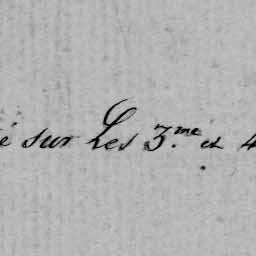 é sur Les 3.me et 4